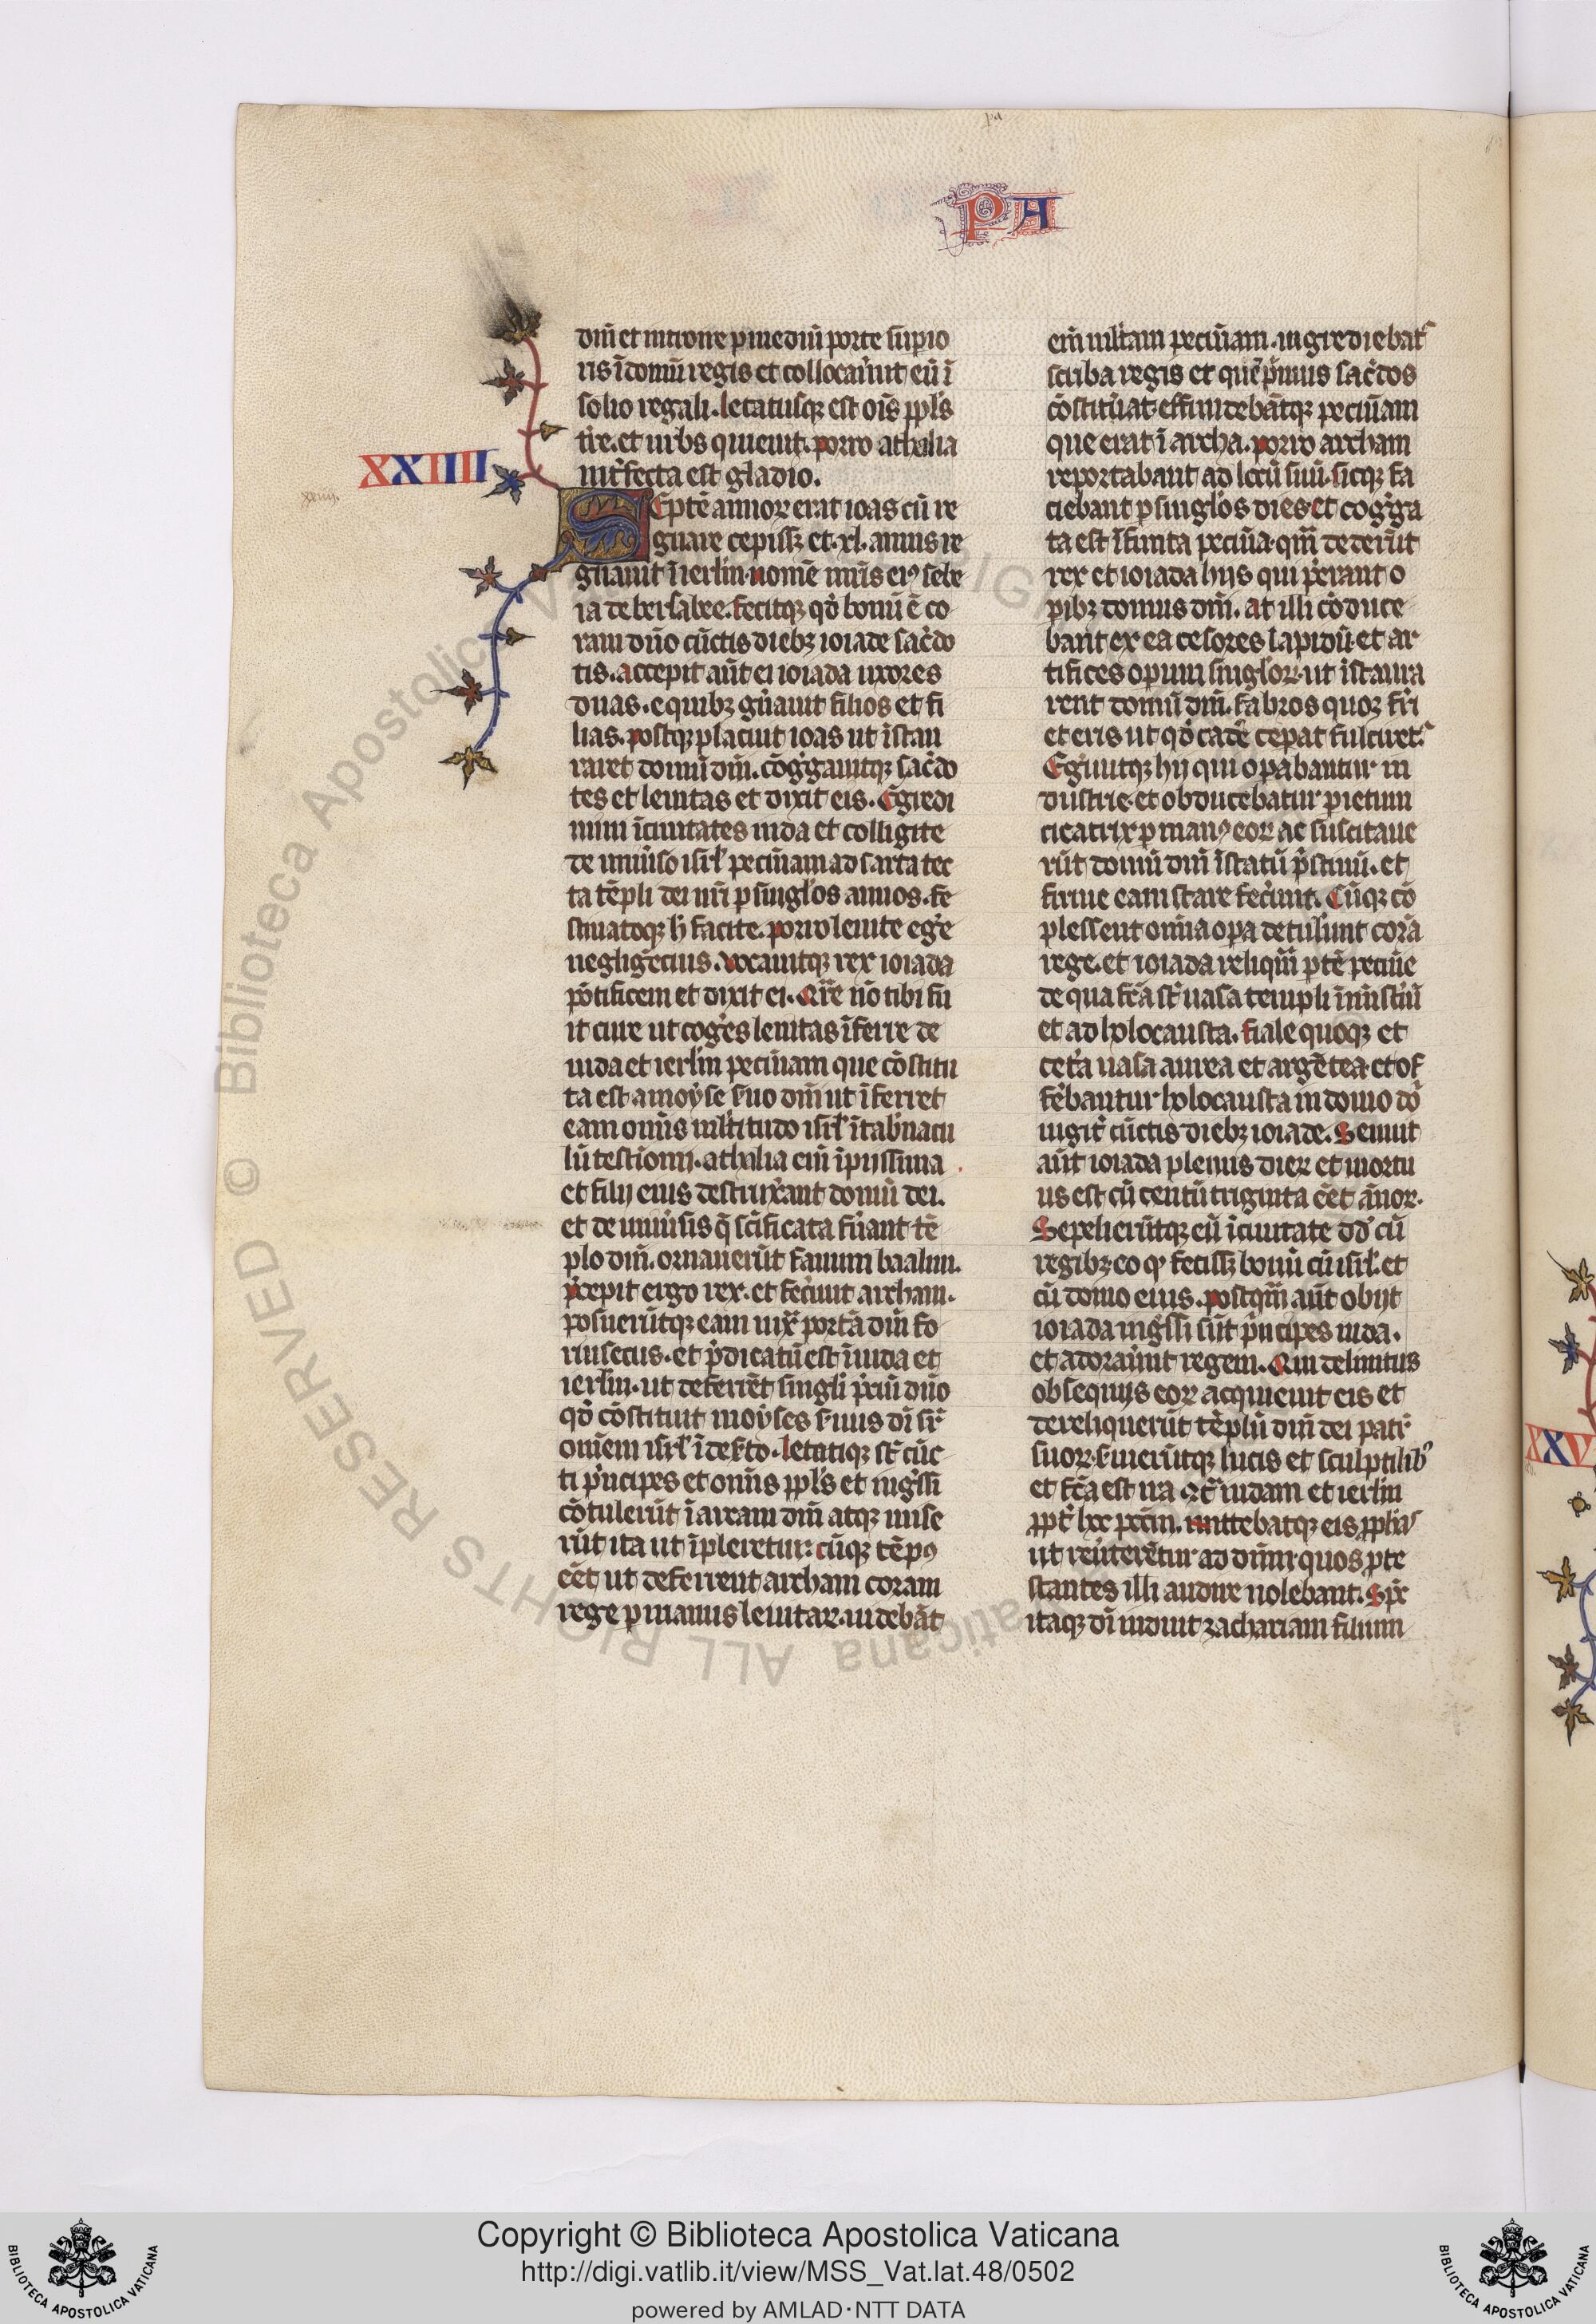 PA
dni̅ et introire p mediu̅ porte supio
ris i̅ domu̅ regis et collocaru̅t eu̅ i̅
solio regali. letatusqꝫ est oi̅s ppl̅s
tr̅e. et urbs quieuit. porro athalia
int̅fecta est gladio.
XXIIII
xxiiij.
SEpte̅ annoꝝ erat ioas cu̅ re
gnare cepissꝫ et .xl. annis re
gnauit i̅ ierl̅m. nome̅ mr̅is eiꝰ sebe
ia de bersabee. fecitqꝫ qd̅ bonu̅ e̅ co
ram dn̅o cu̅ctis diebꝫ ioiade sac̅do
tis. accepit aut̅ ei ioiada uxores
duas. e quibꝫ gn̅auit filios et fi
lias. postqꝫ placuit ioas ut i̅stau
raret domu̅ dni̅. co̅g̅gauitqꝫ sac̅do
tes et leuitas et dixit eis. Egredi
mini i̅ ciuitates iuda et colligite
de uniu̅so isrl̅ pecu̅iam ad sarta tec
ta te̅pli dei nr̅i p singl̅os annos. fe
stinatoqꝫ h̅ facite. porro leuite eg̅e
neglige̅cius. vocauitqꝫ rex ioiada
po̅tificem et dixit ei. Qr̅e no̅ tibi fu
it cure ut cog̅es leuitas i̅ferre de
iuda et ierl̅m pecu̅iam que co̅stitu
ta est a moyse s̅uo dni̅ ut i̅ferret
eam omi̅s ml̅titudo isrl̅ i̅ tab̅nacu
lu̅ testionij. athalia eni̅ i̅pijssima
et filij eius destrux̅ant domu̅ dei.
et de uniu̅sis q̅ sc̅ificata fu̅ant te̅
plo dni̅. ornaueru̅t fanum baalim.
p̅cepit ergo rex. et fec̅unt archam.
posueru̅tqꝫ eam iux̅ porta̅ dni̅ fo
rinsecus. et p̅dicatu̅ est i̅ iuda et
ierl̅m. ut deferre̅t singli p̅ciu̅ dn̅o
qd̅ co̅stituit moyses s̅uus di̅ sr̅
omi̅em isrl̅ i̅ des̅to. letatiqꝫ st̅ cu̅c
ti p̅ncipes et omi̅s ppl̅s et ing̅ssi
co̅tuleru̅t i̅ arcam dni̅ atqꝫ mise
ru̅t ita ut i̅pleretur: cu̅qꝫ te̅pꝰ
ee̅t ut deferrent archam coram
rege p manus leuitaꝝ. uideba̅t
eni̅ ml̅tam pecu̅iam. ingrediebat᷑
scriba regis et que̅ p̅mus sac̅dos
co̅stitu̅at. effundeba̅tqꝫ pecu̅iam
que erat i̅ archa. porro archam
reportabant ad locu̅ suu̅. sicqꝫ fa
ciebant p singl̅os dies. et cog̅ga
ta est i̅finita pecu̅ia. qm̅ dederu̅t
rex et ioiada hijs qui p̅erant o
pibꝫ domus dni̅. at illi co̅duce
bant ex ea cesores lapidu̅. et ar
tifices opum singl̅oꝝ. ut i̅staura
rent domu̅ dni̅. fabros quoqꝫ fr̅i
et eris ut qd̅ cade̅ cepat fulciret᷑.
Eg̅untqꝫ hij qui opabantur in
dustrie. et obducebatur pietum
cicatrix p manꝰ eoꝝ ac suscitaue
ru̅t domu̅ dni̅ i̅ statu̅ p̅stinu̅. et
firme eam stare fec̅unt. Cu̅qꝫ co̅
plessent omi̅a opa detul̅unt cora̅
rege. et ioiada reliqua̅ pte̅ pecu̅ie
de qua fc̅a st̅ uasa templi i̅ minist̅iu̅
et ad holocausta. fiale quoqꝫ et
cet̅a uasa aurea et arge̅tea. et of
fe̅bantur holocausta in domo do̅
iugit̅ cu̅ctis diebꝫ ioiade. Senuit
aut̅ ioiada plenus dieꝝ et mortu
us est cu̅ centu̅ triginta ee̅t a̅noꝝ.
Sepelieru̅tqꝫ eu̅ i̅ ciuitate dd̅ cu̅
regibꝫ eo qꝰ fecissꝫ bonu̅ cu̅ isrl̅. et
cu̅ domo eius. postqm̅ aut̅ obijt
ioiada ing̅ssi su̅t p̅ncipes iuda.
et adorau̅unt regem. Qui delinitus
obsequijs eoꝝ acquieuit eis et
dereliqueru̅t te̅plu̅ dni̅ dei patr̅
suoꝝ. s̅uieru̅tqꝫ lucis et sculptilibꝰ
et fc̅a est ira 9t̅ iudam et ierl̅m
ppt̅ hoc pcc̅m. mittebatqꝫ eis pph̅as
ut reu̅tere̅tur ad dn̅m. quos pte
stantes illi audire nolebant. Spc̅
itaqꝫ di̅ induit zachariam filium
XXV
Copyright © Biblioteca Apostolica Vaticana
http://digi.vatlib.it/view/MSS_Vat.lat.48/0502
powered by AMLAD·NTT DATA
BIBLIOTECA APOSTOLICA VATICANA
BIBLIOTECA APOSTOLICA VATICANA